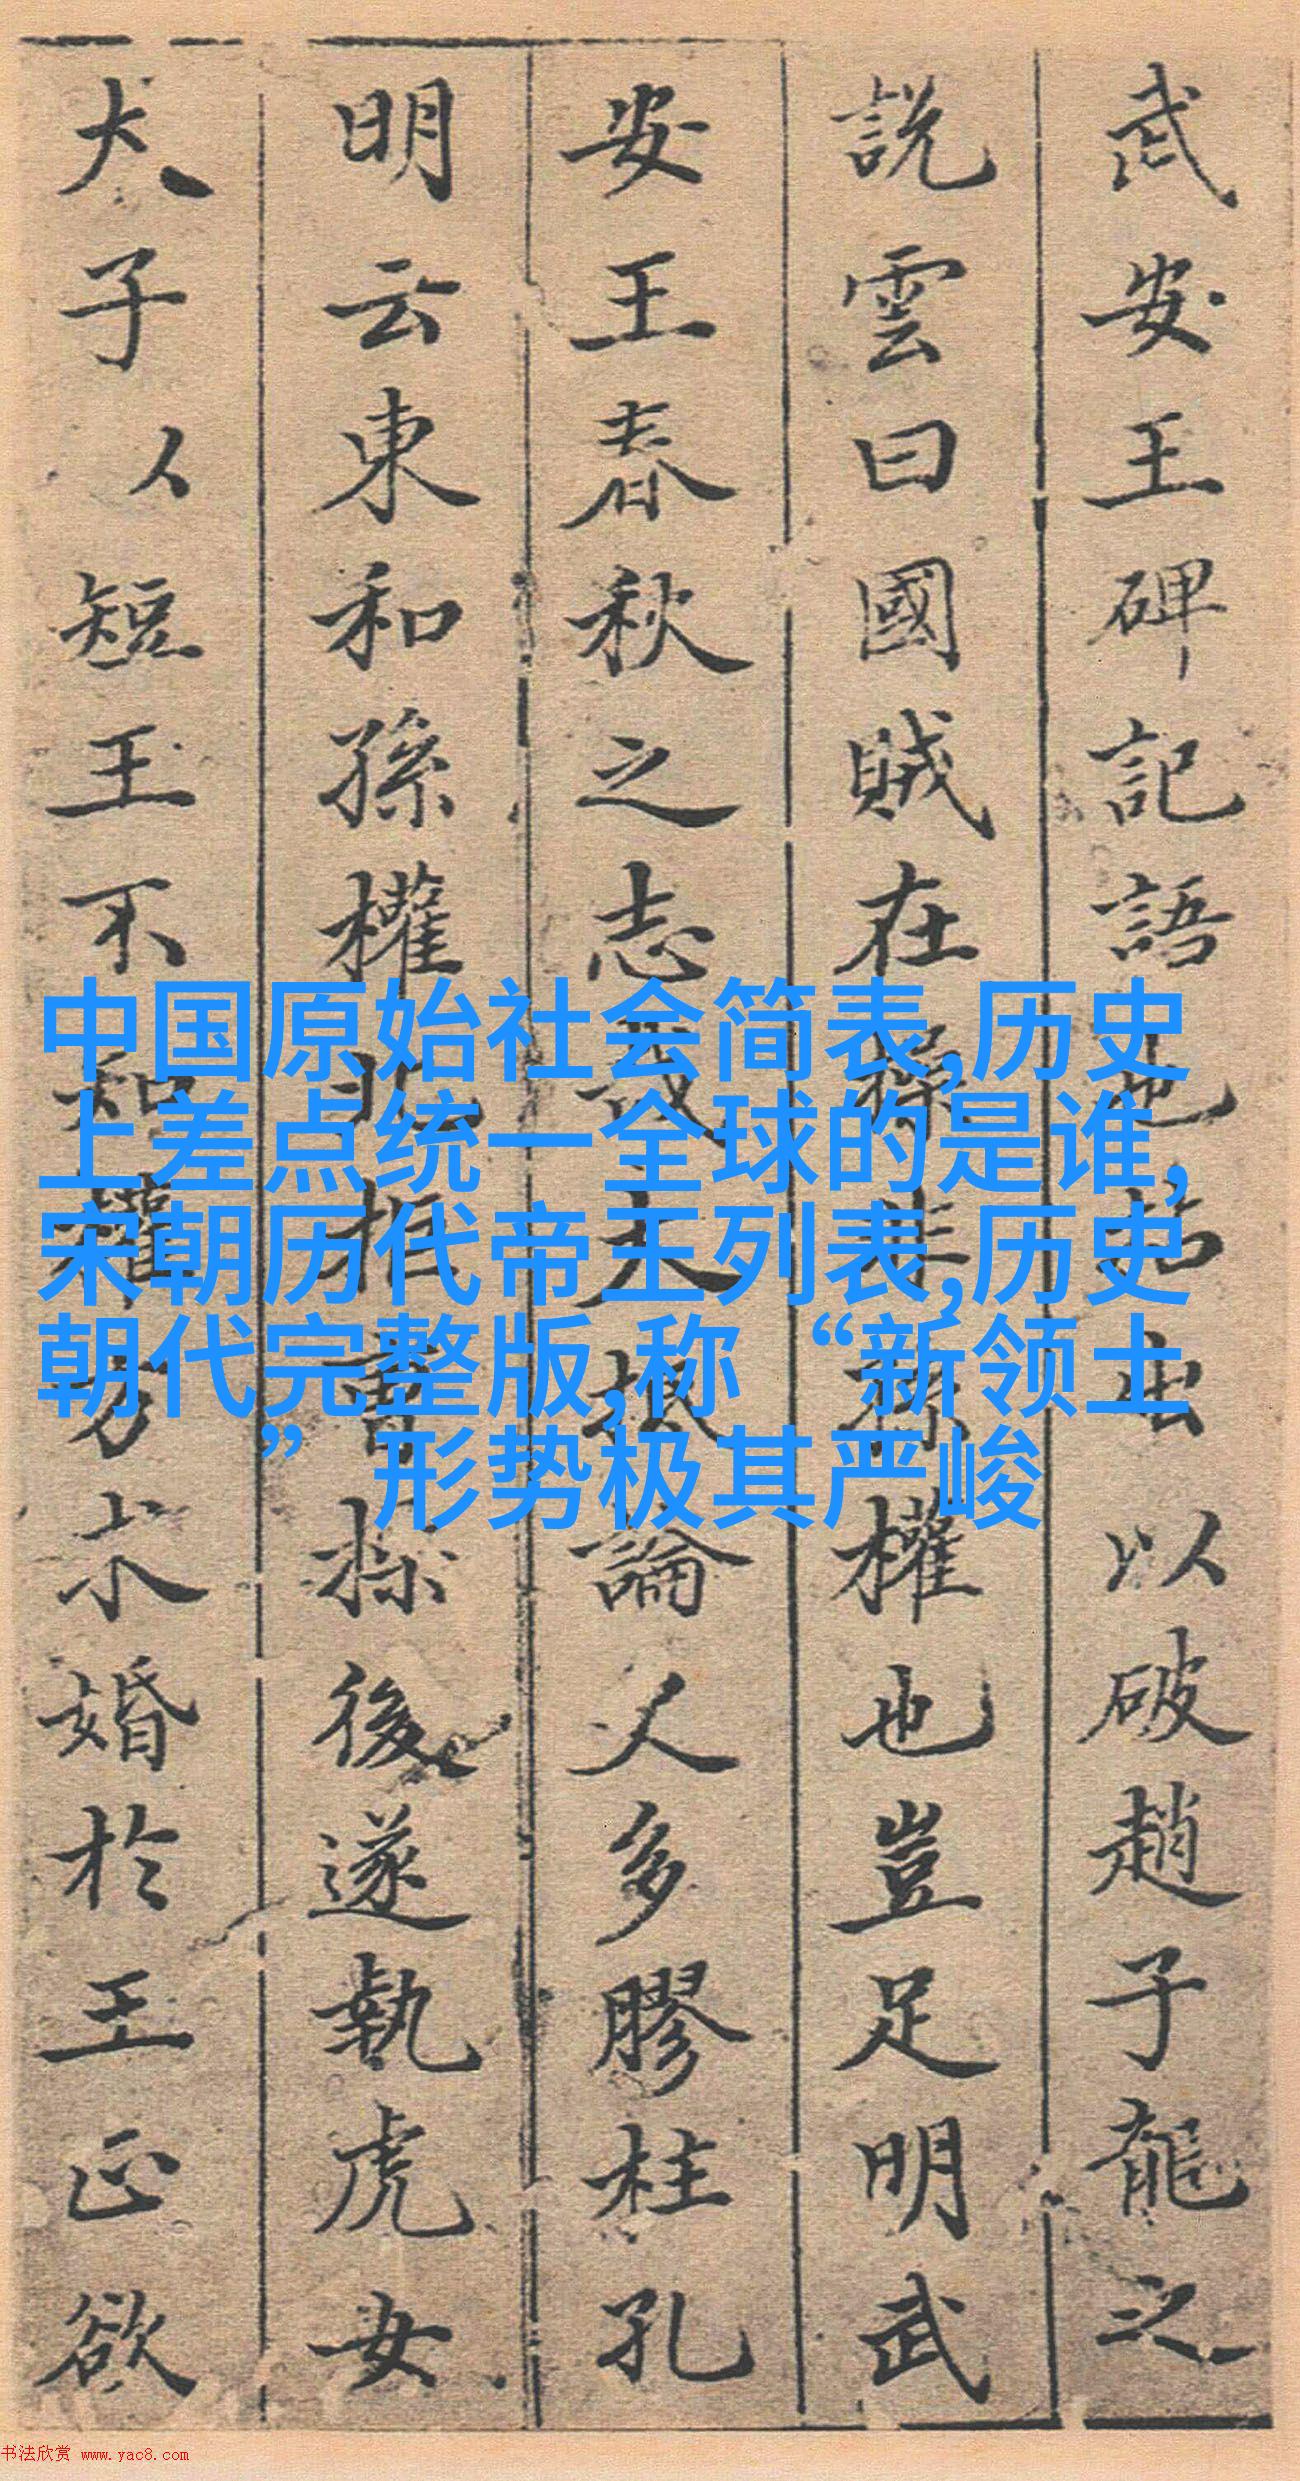 武安王碑記語也以破趙子龍之
説雲曰國賊在操非孫權也豈足明武
安王春秋之志哉大抵論人多膠柱孔
明云東和孫權北拒曹操後遂執虎女
犬子以短王不知權方求婚於王正欲
中国原始社会简表,历史
上差点统一全球的是谁,
宋朝历代帝王列表,历史
朝代完整版,称“新领土
”形势极其严峻
书法欣赏 www.yac8.com